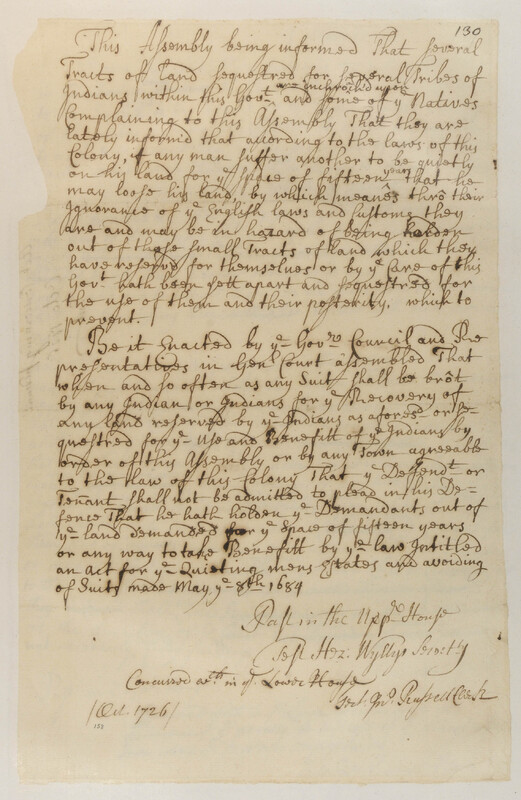 130
This Assembly being informed That several
Tracts of Land sequestred for several Tribes of
Indians within this Govt. are Inchroch'd upon and some of ye Natives
Complaining to this Assembly That they are
lately informd that acording to the laws of this
Colony, if any man suffer another to be quietly
on his land for ye space of fifteen years that he
may loose his land, by which meanes thrô their
Ignorance of ye English laws and Customs they
are and may be in hazard of being holden
out of those small Tracts of land which they
have reservd for themselves or by ye Care of this
Govt. hath been sett apart and sequestred for
the use of them and their posterity. which to
prevent.
Be it Enacted by ye Govr. Council and Re
presentatives in Genll Court assembled That
when and so often as any Suit shall be brôt
by any Indian or Indians for ye Recovery of
any land reserved by ye Indians as aforesd. or Se-
questred for ye Use and Benefitt of ye Indians by
order of this Assembly or by any Town agreeable
to the Law of this Colony That ye Deffendt. or
Tenant shall not be admitted to plead in his De-
fence That he hath holden ye Demandants out of
ye land demanded for ye Space of fifteen years
or any way to take Benefitt by ye law Intitled
an Act for ye Quieting mens Estates and avoiding
of Suits made May ye 8th 1684
Past in the Uppr. House
Test Hez: Wyllys Secretry
Concurred with in ye Lower House
Test. Jno. Russell Clerk
/Oct. 1726/